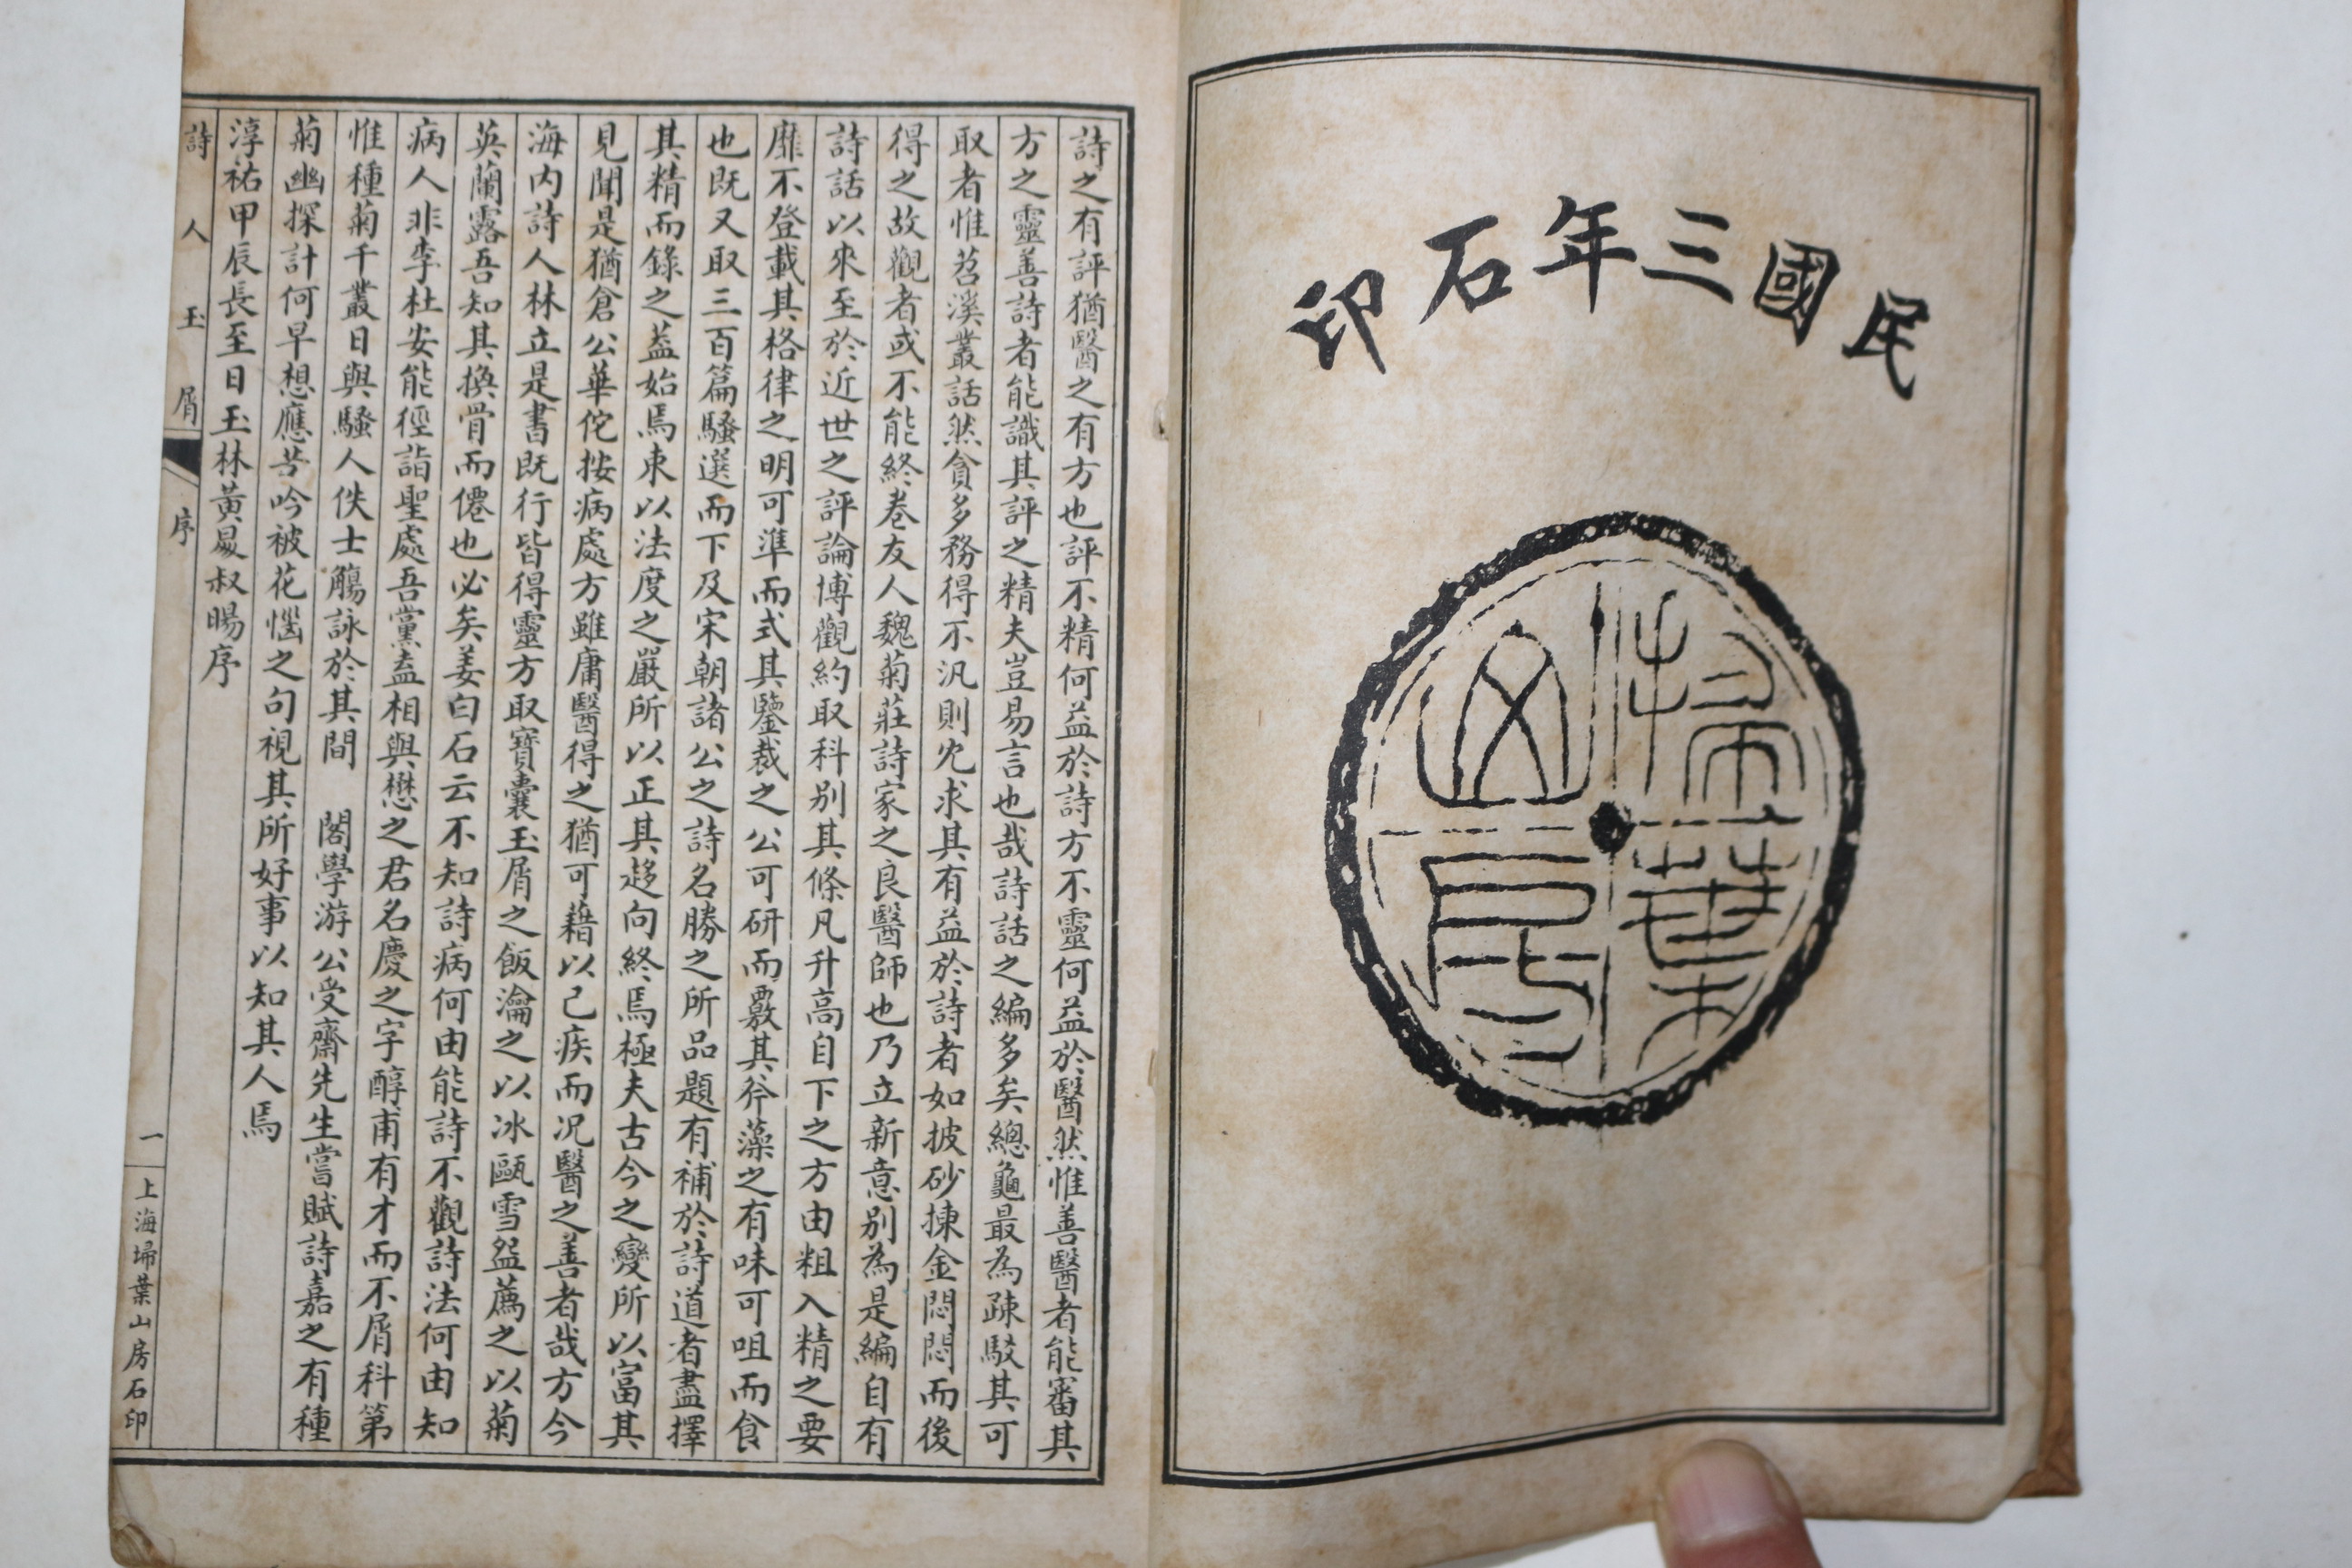 民國三年石印
掃葉山房
詩之有評猶醫之有方也評不精何益於詩方不靈何益於醫然惟善醫者能審其
方之靈善詩者能識其評之精夫豈易言也哉詩話之編多矣總龜最為疎駁其可
取者惟苕溪叢話然貪多務得不汎則冗求其有益於詩者如披砂揀金悶悶而後
得之故觀者或不能終卷友人魏菊莊詩家之良醫師也乃立新意别為是編自有
詩話以來至於近世之評論博觀約取科别其條凡升高自下之方由粗入精之要
靡不登載其格律之明可準而式其鑒裁之公可研而覈其斧藻之有味可咀而食
也既又取三百篇騷選而下及宋朝諸公之詩名勝之所品題有補於詩道者盡擇
其精而錄之葢始焉束以法度之嚴所以正其趍向終焉極夫古今之變所以富其
見聞是猶倉公華佗按病處方雖庸醫得之猶可藉以已疾而况醫之善者哉方今
海内詩人林立是書既行皆得靈方取寶囊玉屑之飯瀹之以冰甌雪盌薦之以菊
英蘭露吾知其換骨而僊也必矣姜白石云不知詩病何由能詩不觀詩法何由知
病人非李杜安能徑詣聖處吾黨盍相與懋之君名慶之字醇甫有才而不屑科第
惟種菊千叢日與騷人佚士觴詠於其間 閣學游公受齋先生嘗賦詩嘉之有種
菊幽探計何早想應苦吟被花惱之句視其所好事以知其人焉
淳祐甲辰長至日玉林黃昇叔暘序
詩人玉屑 序 一 上海埽葉山房石印